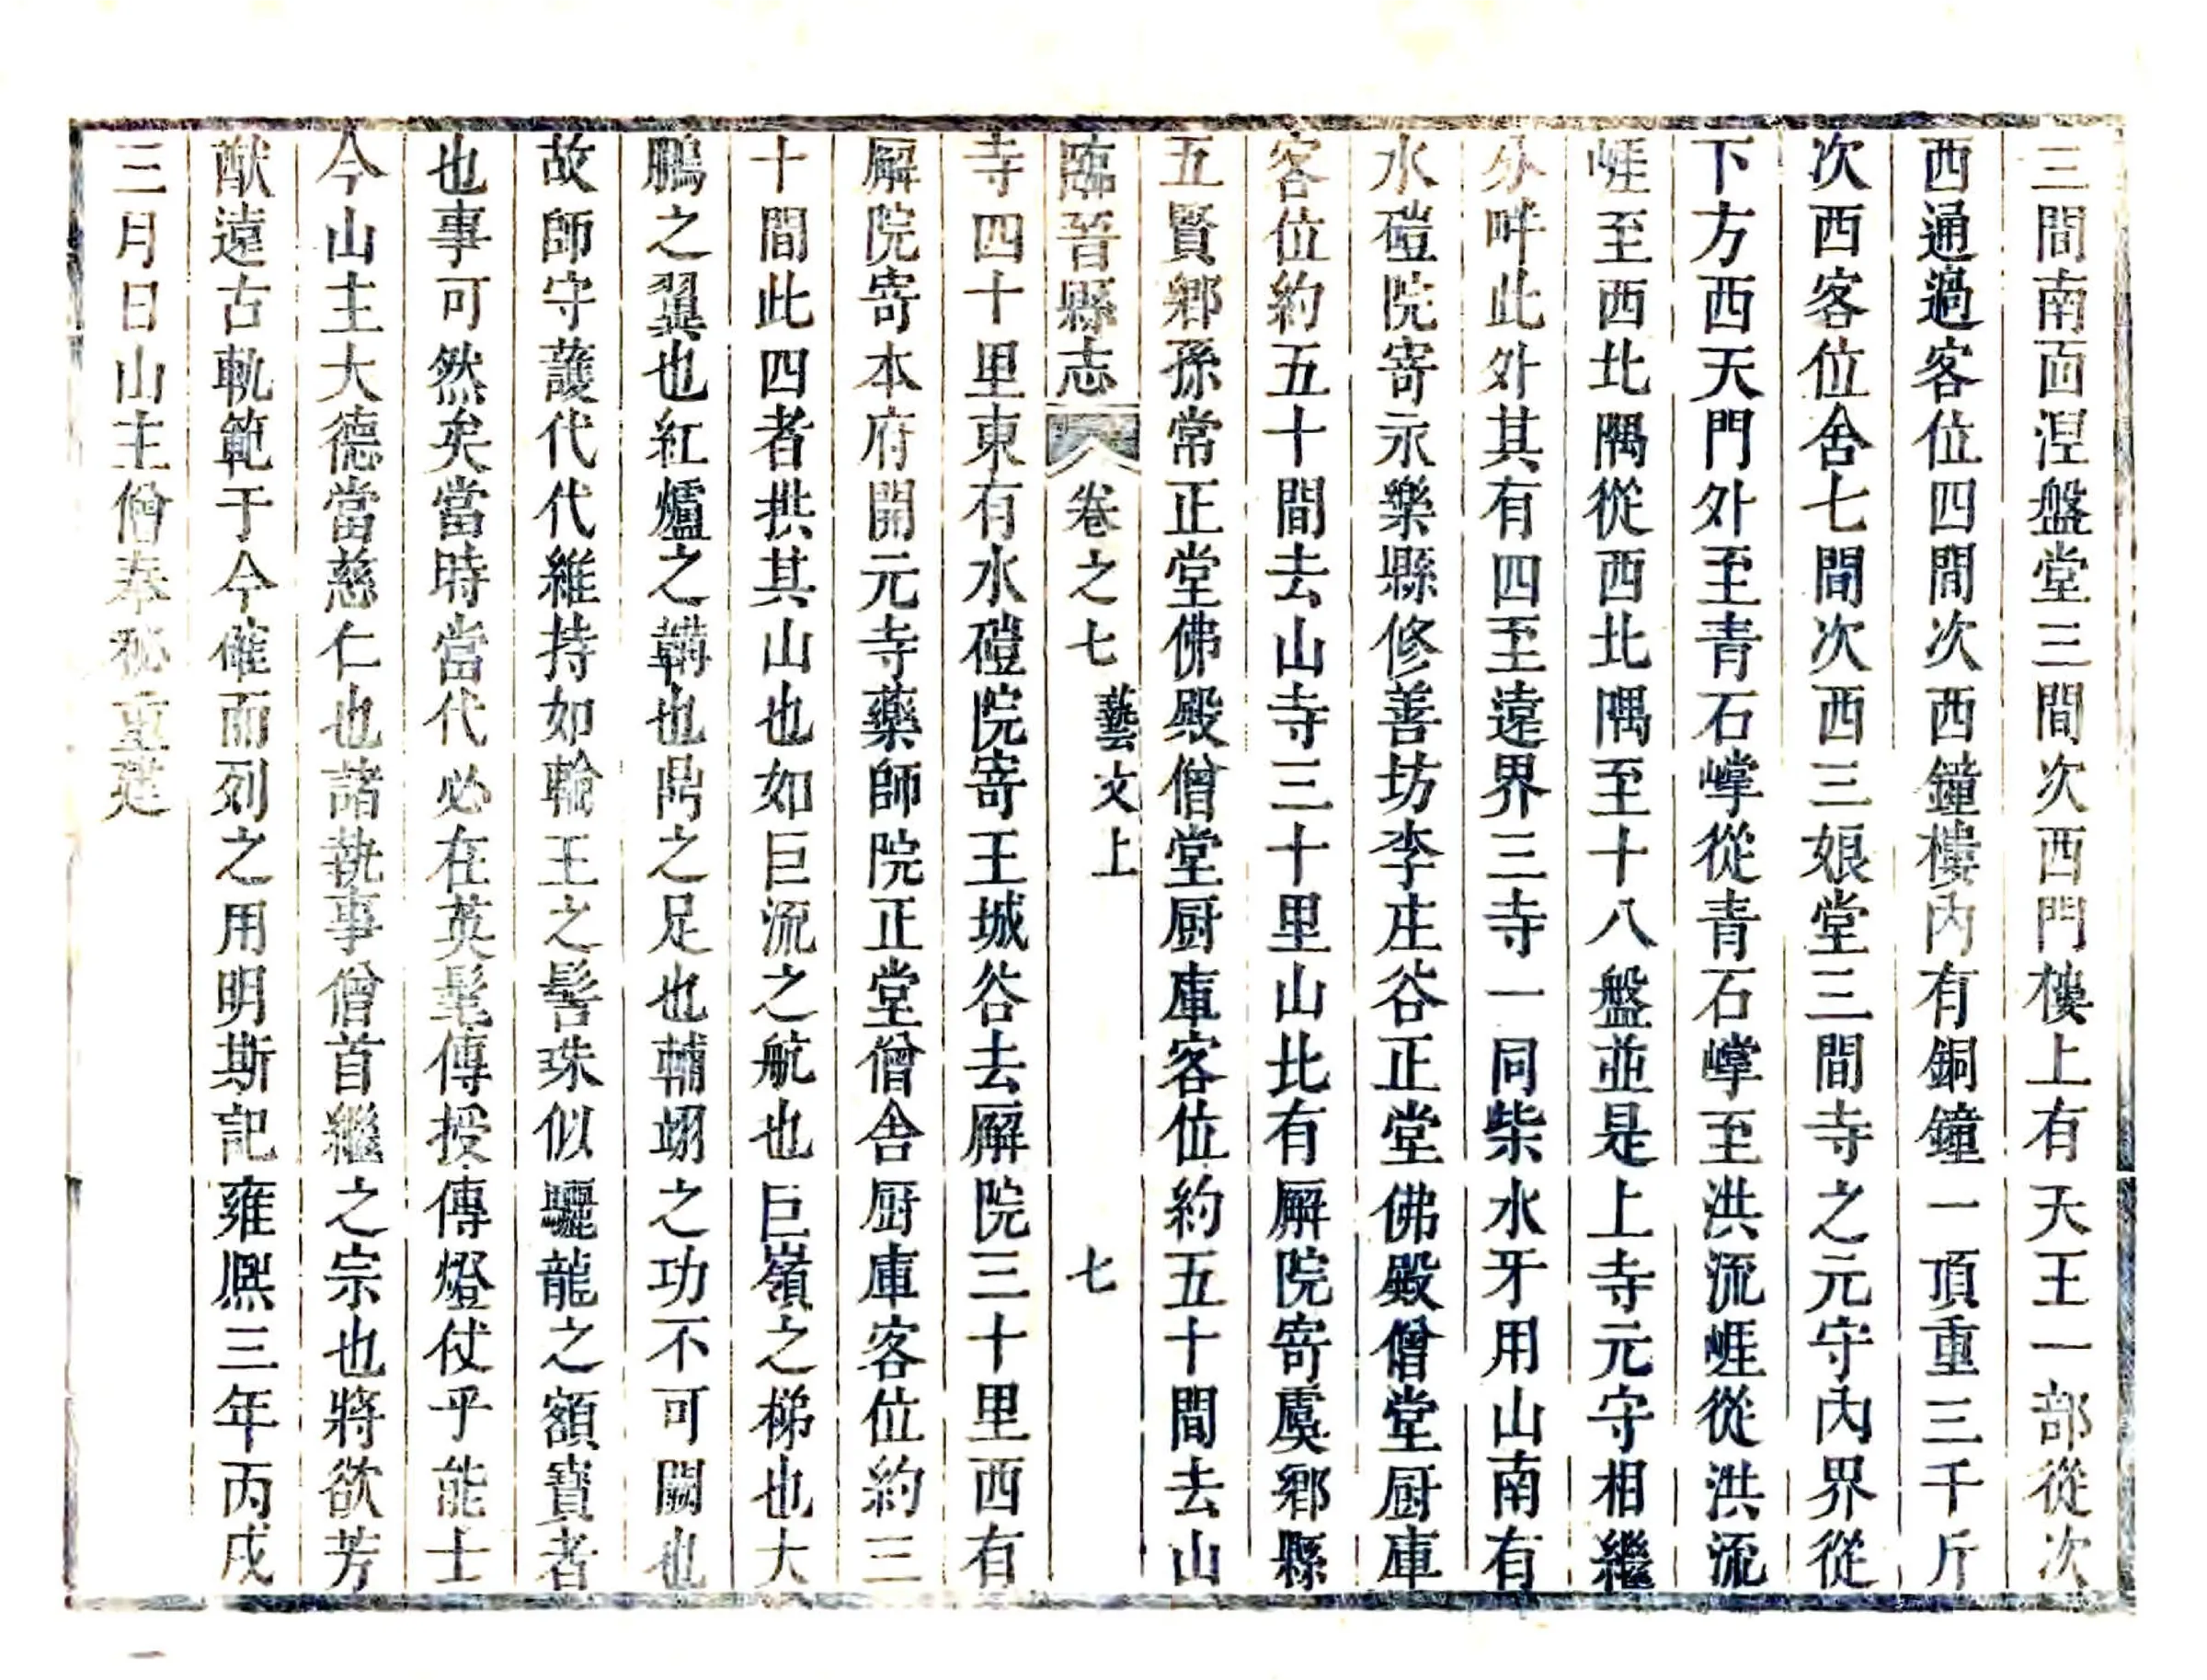 三間南面涅盤堂三間次西門樓上有天王一部從次
西通過客位四間次西鐘樓內有銅鐘一頂重三千斤
次西客位舍七間次西三娘堂三間寺之元守內界從
下方西天門外至青石嶂從青石嶂至洪流崕從洪流
崕至西北隅從西北隅至十八盤並是上寺元守相繼
畔此外其有四至遠界三寺一同柴水牙用山南有
水磑院寄永樂縣修善坊李庄谷正堂佛殿僧堂厨庫
客位約五十間去山寺三十里山北有廨院寄虞鄉縣
五賢鄉孫常正堂佛殿僧堂厨庫客位約五十間去山
臨晉縣志 卷之七 藝文上 七
寺四十里東有水磑院寄王城谷去廨院三十里西有
廨院寄本府開元寺藥師院正堂僧舍厨庫客位約三
十間此四者拱其山也如巨流之航也巨嶺之梯也大
鵬之翼也紅爐之鞲也鼎之足也輔翊之功不可闕也
故師守護代代維持如輪王之髻珠似驪龍之額寶者
也事可然矣當時當代必在英髦傳授傳燈仗乎能士
今山主大德當慈仁也諸執事僧首繼之宗也將欲芳
猷遠古軌範于今確而列之用明斯記雍熙三年丙戌
三月日山主僧奉秘重建